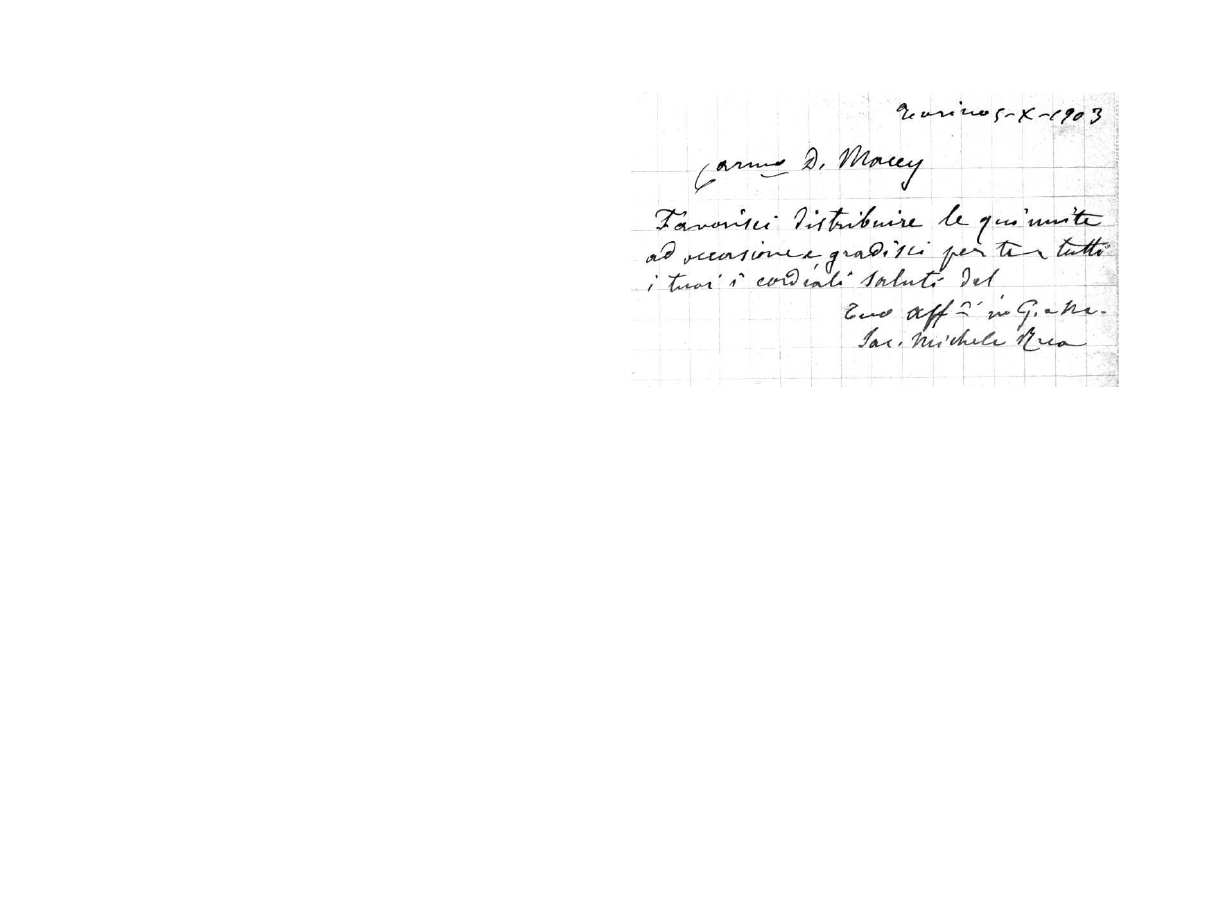 Torino 5-X-1903
Carmo D. Macey
Favorisci distribuire le qui unite
ad occasione e gradisci per te e tutti
i tuoi i cordiali saluti del
Tuo aff in G. e M.
Sac. Michele Rua